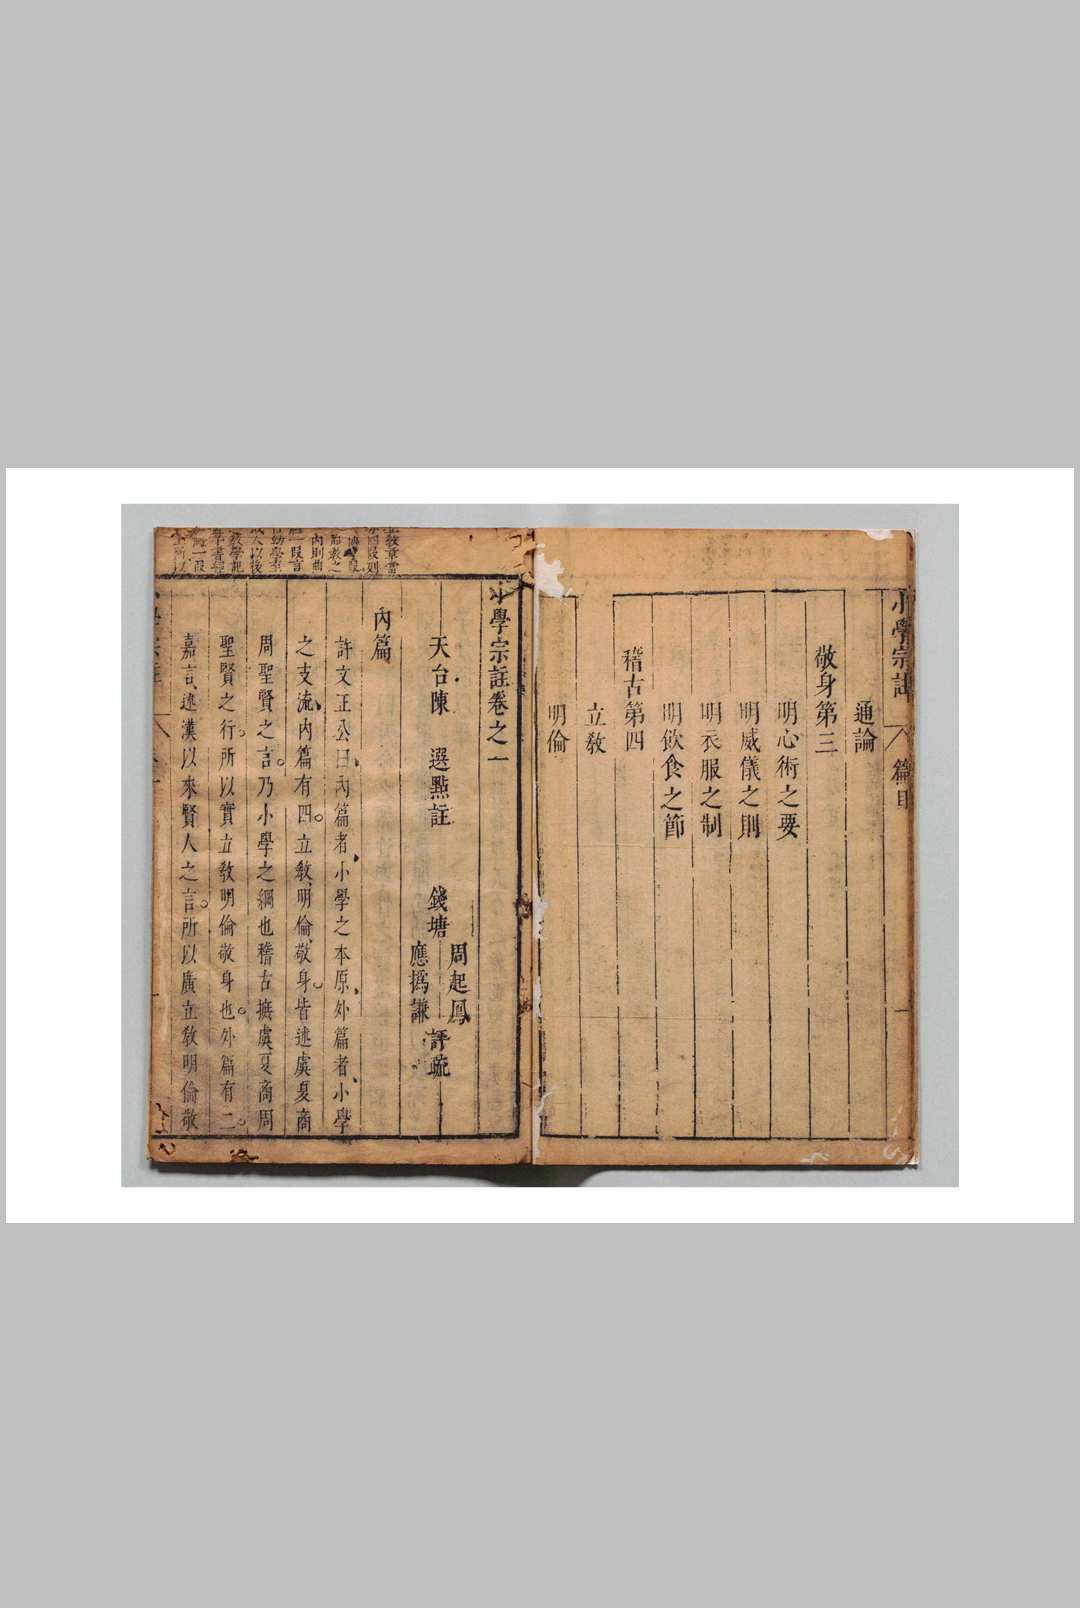 小學宗註 篇目
通論
敬身第三
明心術之要
明威儀之則
明衣服之制
明飲食之節
稽古第四
立敎
明倫
小學宗註卷之一
天台陳 選㸃註 錢塘
周起鳳
應撝謙
評疏
內篇
許文正公曰、內篇者、小學之本原、外篇者、小學
之支流、內篇有四。立敎、明倫、敬身。皆述虞夏商
周聖賢之言。乃小學之綱也稽古摭虞夏商周
聖賢之行。所以實立敎明倫敬身也。外篇有二。
嘉言、述漢以來賢人之言。所以廣立敎明倫敬